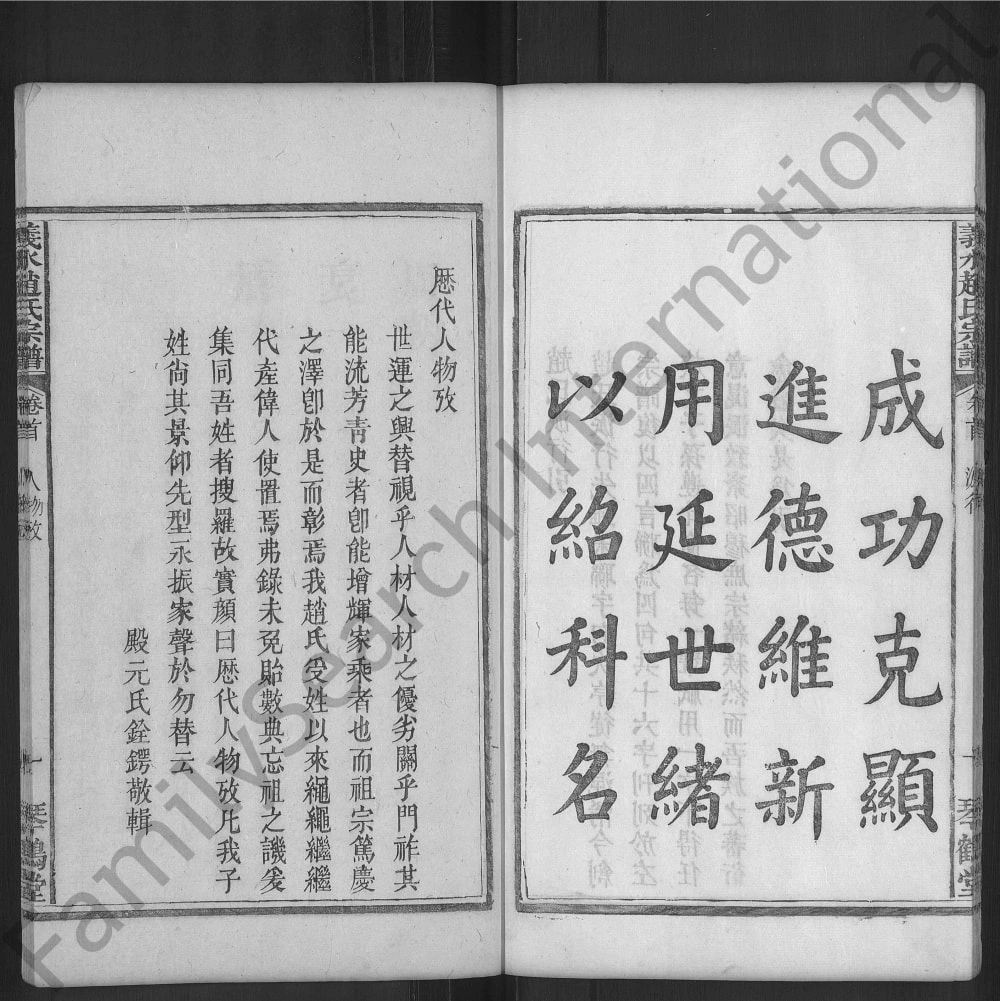 義水趙氏宗譜
派行
琴鶴堂
成功克顯
進德維新
用延世緒
以紹科名
歷代人物攷
世運之興替視乎人材人材之優劣關乎門祚其
能流芳青史者卽能增輝家乘者也而祖宗篤慶
之澤卽於是而彰焉我趙氏受姓以來繩繩繼繼
代產偉人使置焉弗錄未免貽數典忘祖之譏爰
集同吾姓者搜羅故實顏曰歷代人物攷凡我子
姓尚其景仰先型永振家聲於勿替云
殿元氏銓鍔敬輯
義水趙氏宗譜
卷首
人物攷
琴鶴堂
FamilySearch International